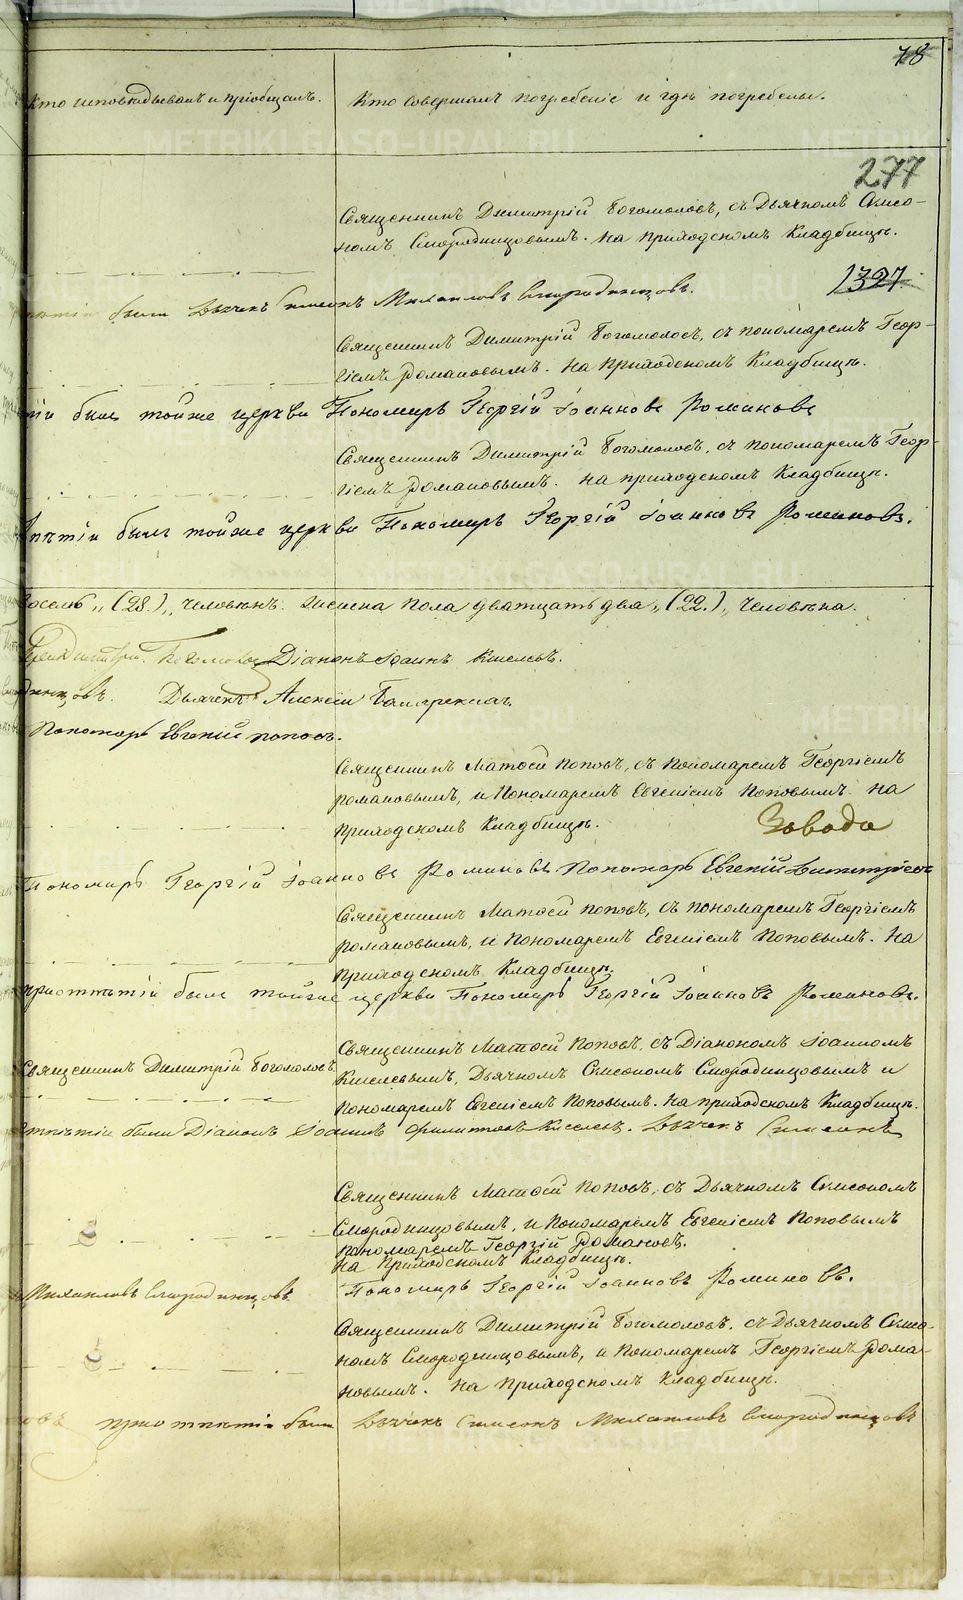 78
Кто исповѣдывалъ и пріобщалъ.
Кто совершалъ погребеніе и гдѣ погребены.
277
Священникъ Димитрій Богомоловъ, съ Дьячкомъ Симео-
номъ Смородинцовымъ. на приходскомъ Кладбищѣ.
1327
были Дьячекъ Симеонъ Михаиловъ Смородинцовъ.
Священникъ Димитрій Богомоловъ, съ пономаремъ Геор-
гіемъ Романовымъ. на приходскомъ Кладбищѣ.
былъ тойже церкви Пономарь Георгій Іоанновъ Романовъ
Священникъ Димитрій Богомоловъ, съ пономаремъ Геор-
гіемъ Романовымъ. на приходскомъ Кладбищѣ.
былъ тойже церкви Пономарь Георгій Іоанновъ Романовъ.
„(28.)„ человѣкъ. женска пола дватцать два „(22.)„ человѣка.
Димитрій Богомоловъ Діаконъ Іоаннъ Киселевъ.
Дьячекъ Алексѣй
Пономарь Евгеній Поповъ.
Священникъ Матѳей Поповъ, съ пономаремъ Георгіемъ
Романовымъ, и Пономаремъ Евгеніемъ Поповымъ. на
приходскомъ Кладбищѣ.
Завода
Пономарь Георгій Іоанновъ Романовъ Пономарь Евгеній Димитріевъ
Священникъ Матѳей Поповъ, съ пономаремъ Георгіемъ
Романовымъ, и пономаремъ Евгеніемъ Поповымъ. на
приходскомъ Кладбищѣ.
приотпѣтіи былъ тойже церкви Пономарь Георгій Іоанновъ Романовъ.
Священникъ Димитрій Богомоловъ
Священникъ Матѳей Поповъ, съ Діакономъ Іоанномъ
Киселевымъ, Дьячкомъ Симеономъ Смородинцовымъ и
пономаремъ Евгеніемъ Поповымъ. на приходскомъ Кладбищѣ.
были Діаконъ Іоаннъ Филитовъ Киселевъ. Дьячекъ Симеонъ
Священникъ Матѳей Поповъ, съ Дьячкомъ Симеономъ
Смородинцовымъ, и Пономаремъ Евгеніемъ Поповымъ
пономаремъ Георгій Романовъ.
на приходскомъ Кладбищѣ.
Михаиловъ Смородинцовъ
Пономарь Георгій Іоанновъ Романовъ.
Священникъ Димитрій Богомоловъ. съ Дьячкомъ Симео-
номъ Смородинцовымъ, и Пономаремъ Георгіемъ Рома-
новымъ. на приходскомъ Кладбищѣ.
приотпѣтіи были Дьячекъ Симеонъ Михаиловъ Смородинцовъ
METRIKI.GASO-URAL.RU